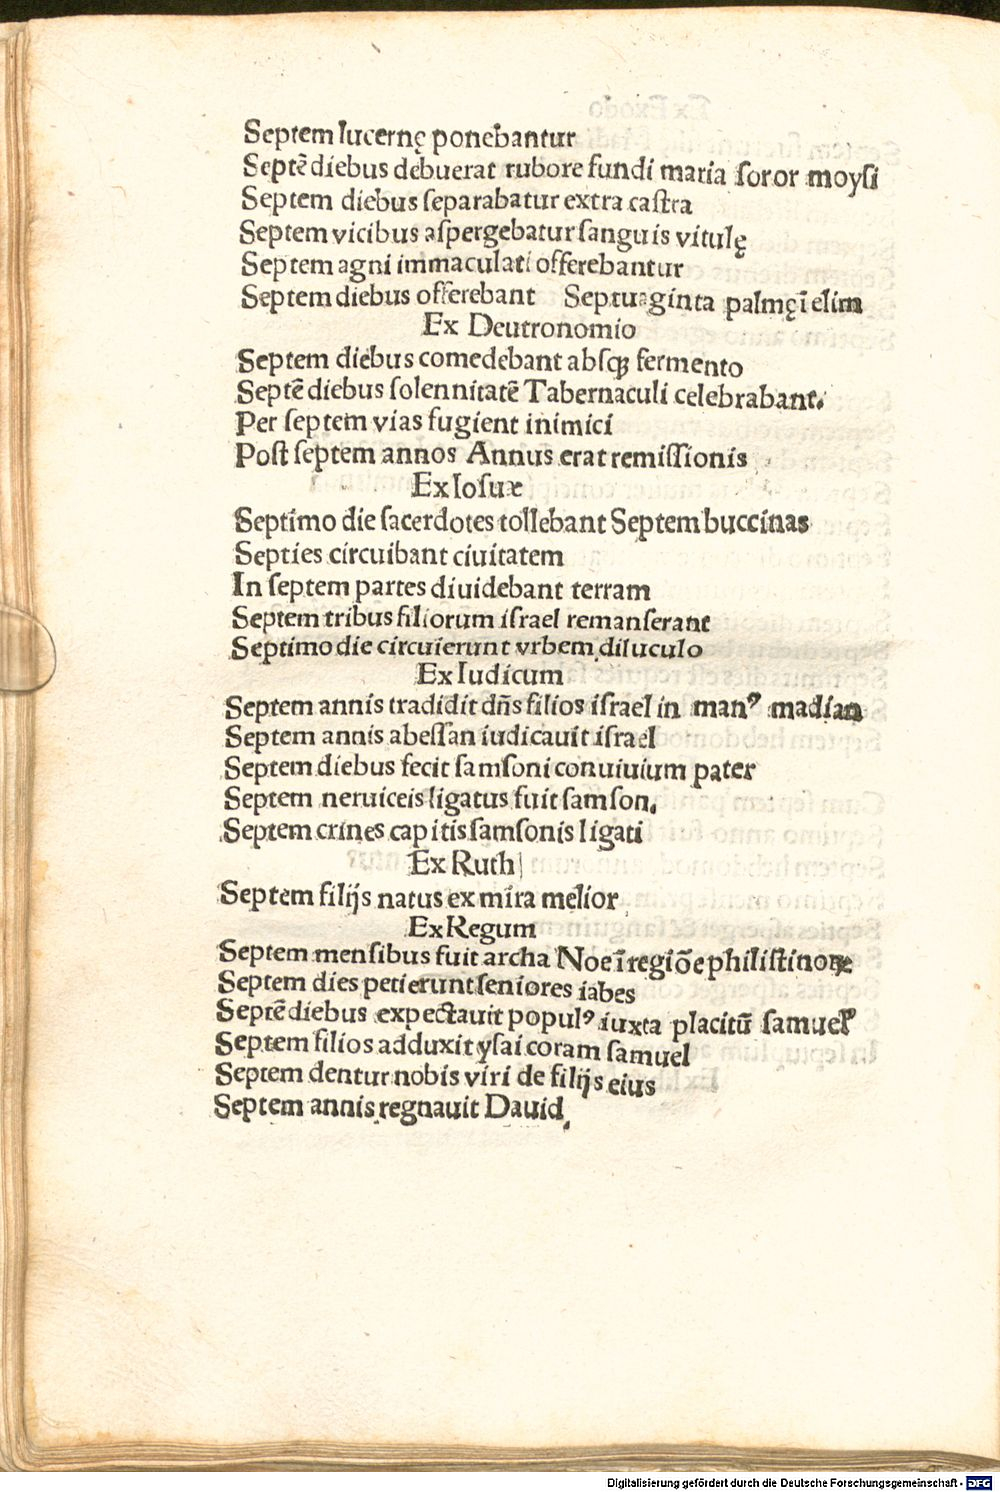 Septem lucernę ponebantur
Septē diebus debuerat rubore fundi maria soror moysi
Septem diebus separabatur extra castra
Septem vicibus aspergebatur sanguis vitulę
Septem agni immaculati offerebantur
Septem diebus offerebant Septuaginta palmę ī elim
Ex Deutronomio
Septem diebus comedebant absqꝫ fermento
Septē diebus solennitatē Tabernaculi celebrabant.
Per septem vias fugient inimici
Post septem annos Annus erat remissionis
Ex Iosue
Septimo die sacerdotes tollebant Septem buccinas
Septies circuibant ciuitatem
In septem partes diuidebant terram
Septem tribus filiorum israel remanserant
Septimo die circuierunt vrbem diluculo
Ex Iudicum
Septem annis tradidit dn̄s filios israel in manꝰ madian
Septem annis abessan iudicauit israel
Septem diebus fecit samsoni conuiuium pater
Septem neruiceis ligatus fuit samson.
Septem crines capitis samsonis ligati
Ex Ruth
Septem filijs natus ex mīra melior
Ex Regum
Septem mensibus fuit archa Noe ī regiōe philistinoꝝ
Septem dies petierunt seniores iabes
Septē diebus expectauit populꝰ iuxta placitū samuel
Septem filios adduxit ysai coram samuel
Septem dentur nobis viri de filijs eius
Septem annis regnauit Dauid
Digitalisierung gefördert durch die Deutsche Forschungsgemeinschaft - DFG